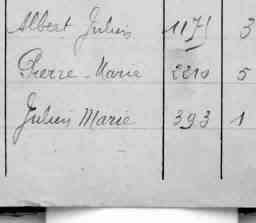 Albert Julien 1175 3
Pierre-Marie 2210 5
Julien Marie 393 1